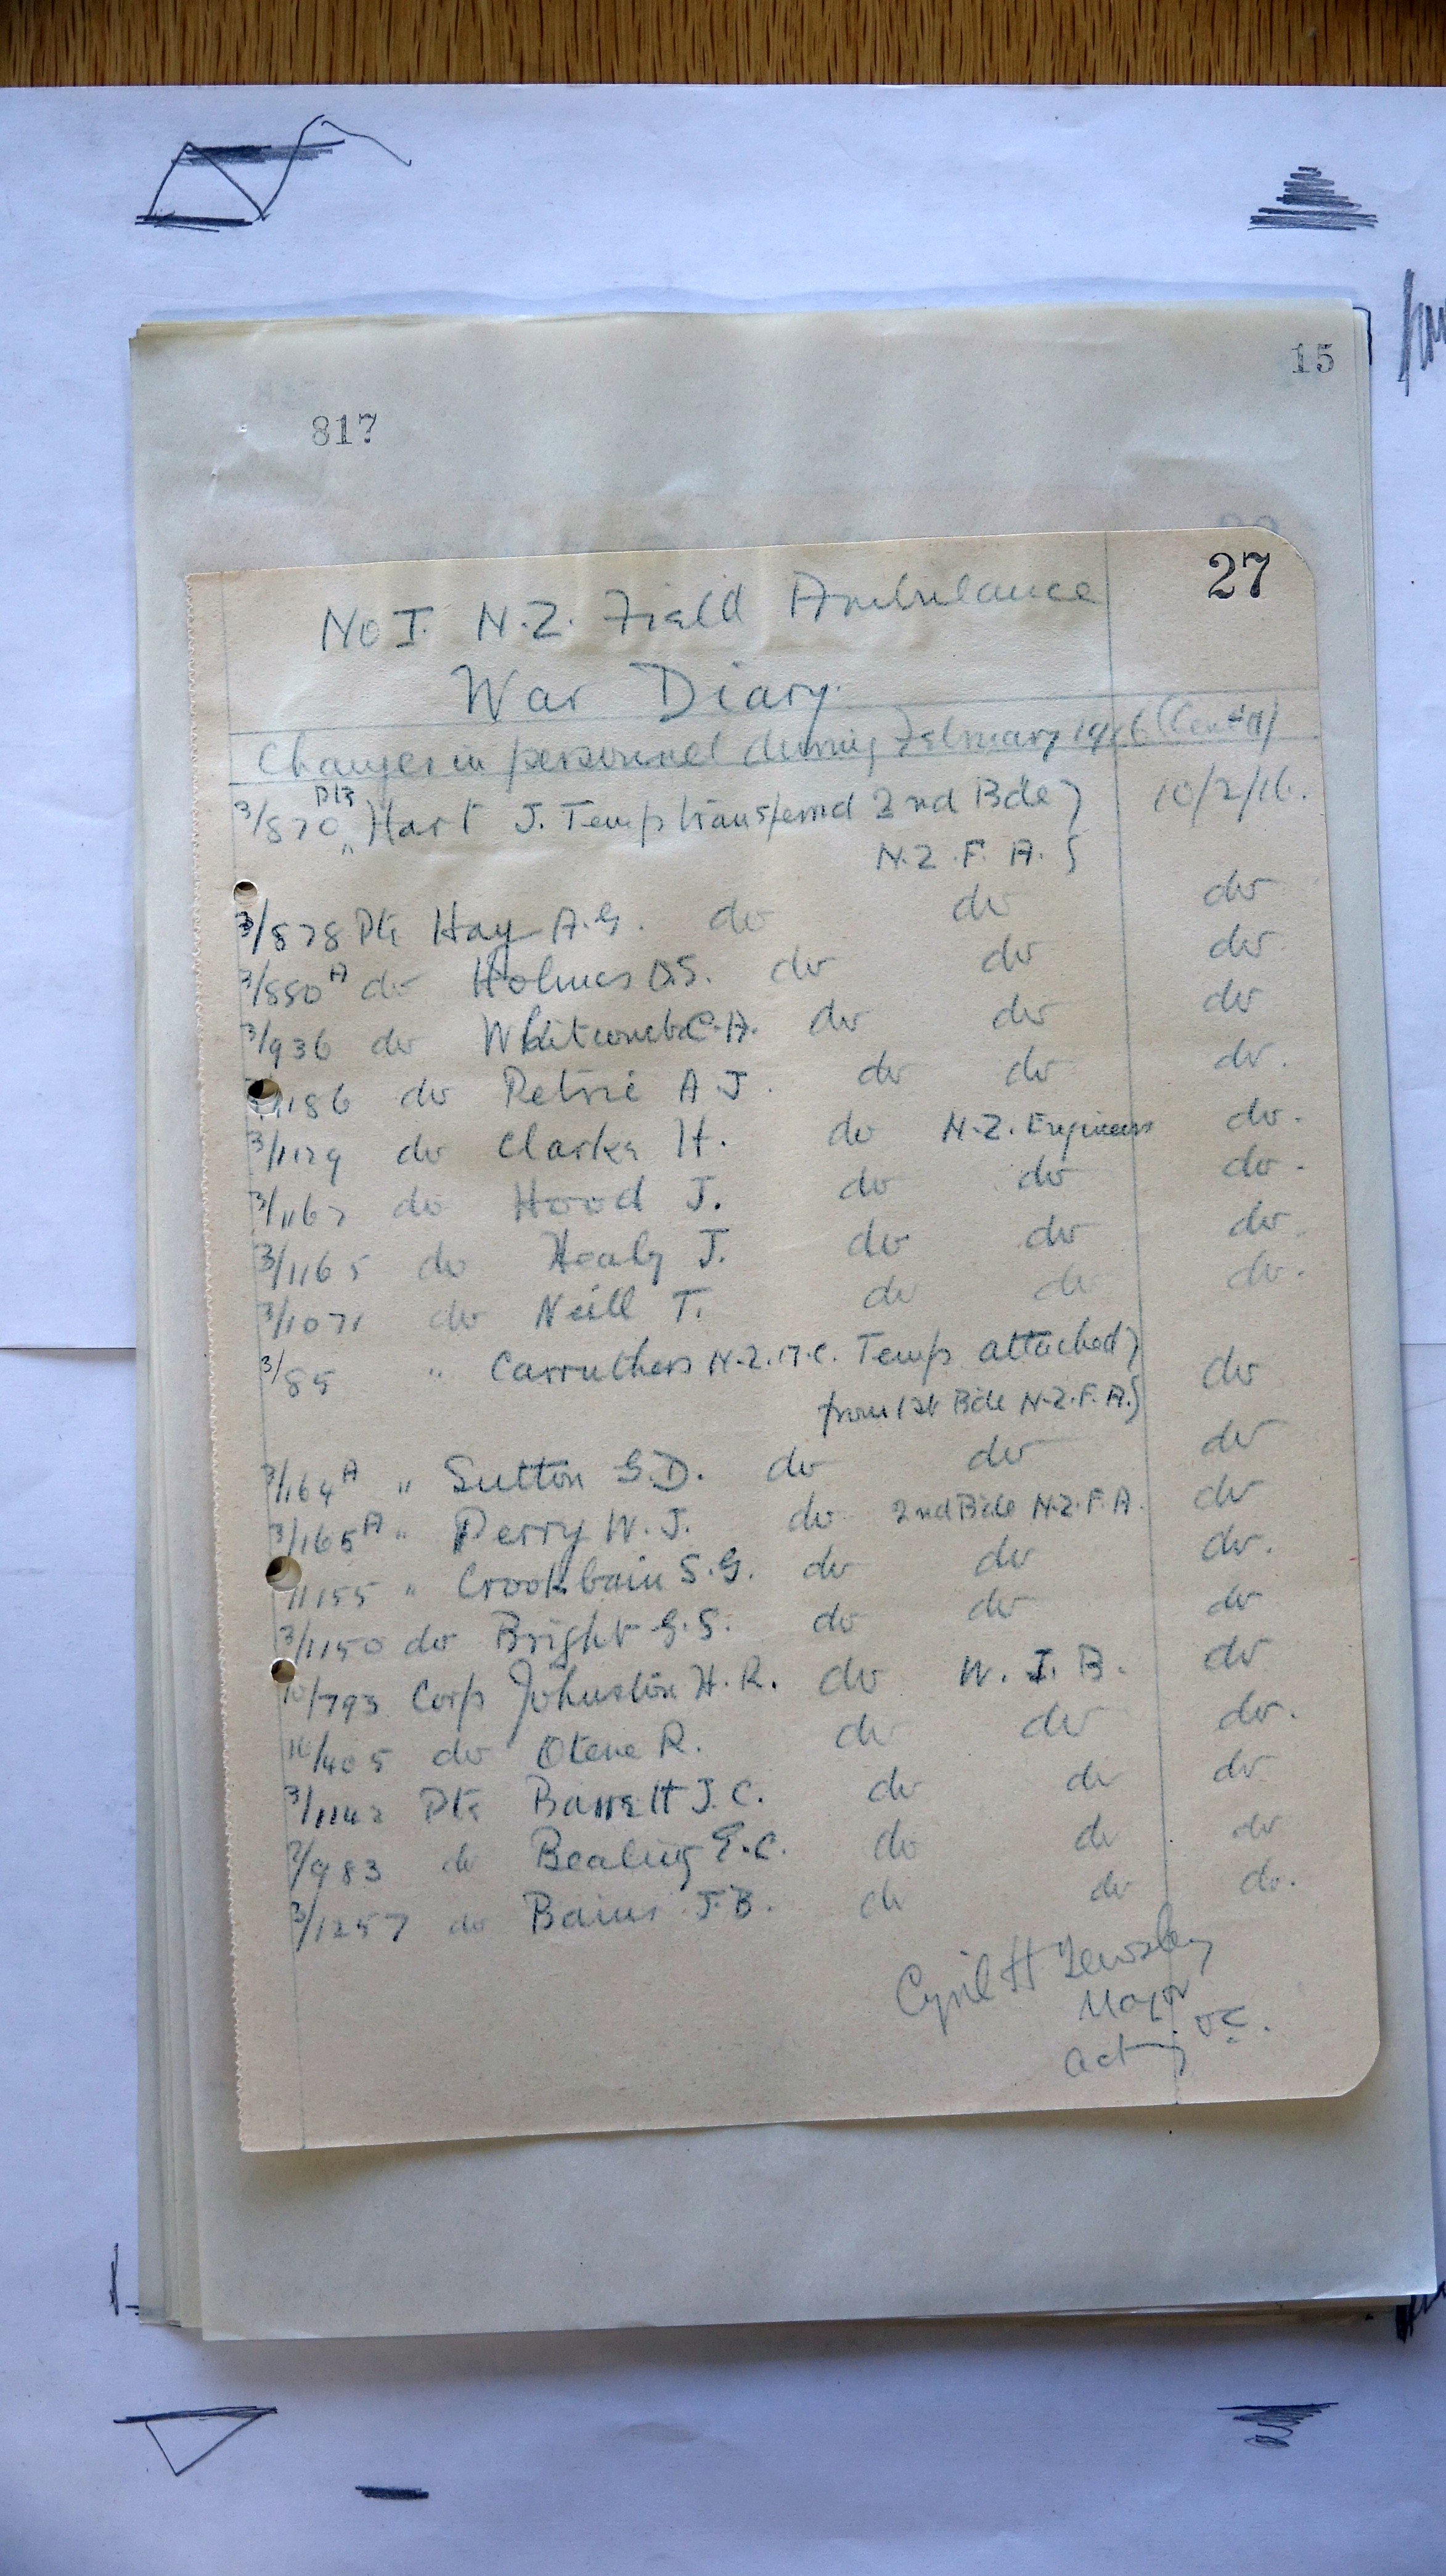 15
817
27
No I. N.Z. Field Ambulance
War Diary.
Changes in personnel during February 1916 (Cont'd)
3/870 Pte " Hart J. Temp transferred 2nd Bde } 10/2/16.
N.Z.F.A. }
3/878 Pte Hay A.G. do do do
3/880 A do Holmes D.S. do do do
3/936 do Whitcombe C.A. do do do
186 do Petrie A J. do do do.
3/1129 do Clarke H. do N.Z. Engineers do.
3/1167 do Hood J. do do do.
3/1165 do Healy J. do do do.
3/1071 do Neill T. do do do.
3/85 " Carruthers N.Z.M.C. Temp attached } do
from 1st Bde N.Z.F.A. }
3/164 A " Sutton G.D. do do do
3/165 A " Perry W.J. do 2nd Bde N.Z.F.A. do
1155 " Crookbain S.G. do do do.
3/1150 do Bright G.S. do do do
10/793 Corp Johnston H.R. do W.I.B. do
16/405 do Otene R. do do do.
3/1142 Pte Barrett J.C. do do do
3/983 do Bealing E.C. do do do
3/1257 do Bains J.B. do do do.
Cyril H Tewsley
Major
acting OC.